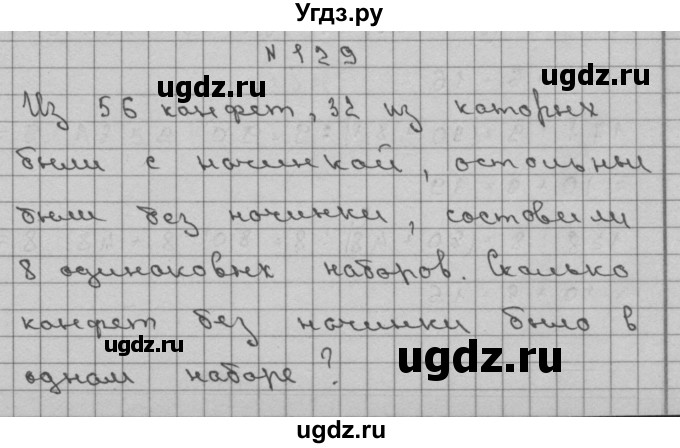 Угдз.ру
№ 129
ugdz.ru ugdz.ru
Из 56 конфет, 32 из которых
были с начинкой, остальные
были без начинки, составили
8 одинаковых наборов. Сколько
конфет без начинки было в
ugdz.ru ugdz.ru
одном наборе?
ugdz.ru